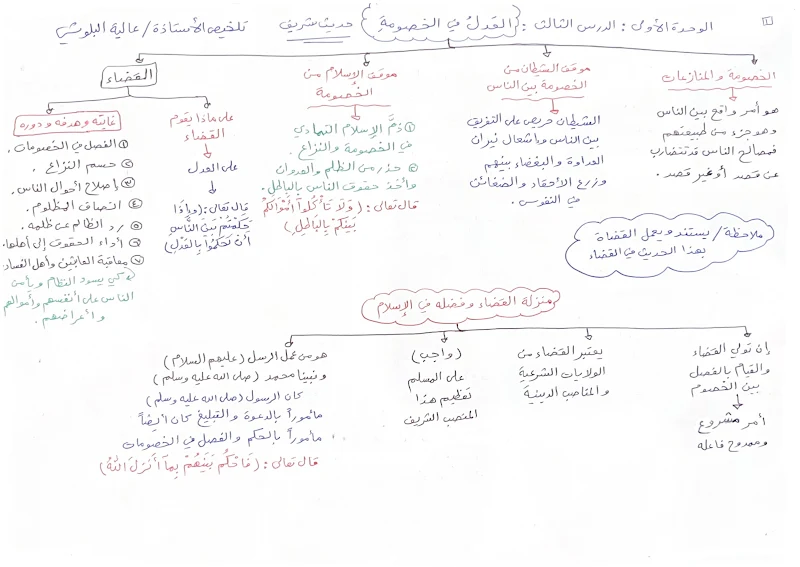 الوحدة الأولى : الدرس الثالث : (العَدلُ في الخصومةِ) حديث شريف تلخيص الأستاذة / عالية البلوشي
الخصومة والمنازعات
هو أمر واقع بين الناس
وهو جزء من طبيعتهم
فمصالح الناس قد تتضارب
عن قصد أو غير قصد .
موقف الشيطان من
الخصومة بين الناس
الشيطان حريص على التفريق
بين الناس وإشعال نيران
العداوة والبغضاء بينهم
وزرع الأحقاد والضغائن
في النفوس .
موقف الإسلام من
الخصومة
① ذمَّ الإسلام التمادي
في الخصومة والنزاع .
② حذر من الظلم والعدوان
وأخذ حقوق الناس بالباطل .
قال تعالى : (وَلَا تَأْكُلُوا أَمْوَالَكُمْ
بَيْنَكُمْ بِالْبَاطِلِ)
القضاء
على ماذا يقوم
القضاء
على العدل
قال تعالى : (وَإِذَا
حَكَمْتُمْ بَيْنَ النَّاسِ
أَنْ تَحْكُمُوا بِالْعَدْلِ)
غايته وهدفه ودوره
① الفصل في الخصومات .
② حسم النزاع .
③ إصلاح أحوال الناس .
④ إنصاف المظلوم .
⑤ ردّ الظالم عن ظلمه .
⑥ أداء الحقوق إلى أهلها .
⑦ معاقبة العابثين وأهل الفساد .
كي يسود النظام ويأمن
الناس على أنفسهم وأموالهم
وأعراضهم .
ملاحظة / يستند ويعمل القضاة
بهذا الحديث في القضاء
منزلة القضاء وفضله في الإسلام
إن تولي القضاء
والقيام بالفصل
بين الخصوم
أمر مشروع
وممدوح فاعله
يعتبر القضاء من
الولايات الشرعية
والمناصب الدينية
(واجب)
على المسلم
تعظيم هذا
المنصب الشريف
هو من عمل الرسل (عليهم السلام)
ونبينا محمد (صلى الله عليه وسلم)
كان الرسول (صلى الله عليه وسلم)
مأموراً بالدعوة والتبليغ كان أيضاً
مأموراً بالحكم والفصل في الخصومات
قال تعالى : (فَاحْكُم بَيْنَهُمْ بِمَا أَنْزَلَ اللهُ)